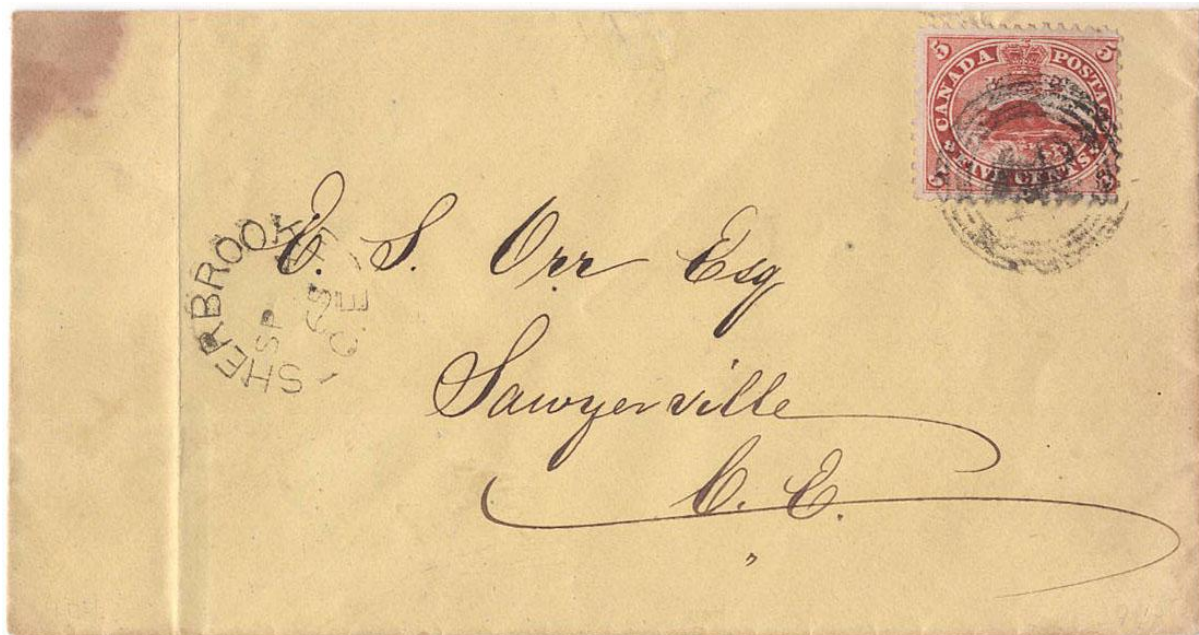 5 CANADA POSTAGE 5
5 FIVE CENTS 5
SHERBROOKE
SP
65
C.E
E. S. Orr Esq
Sawyerville
C. E.